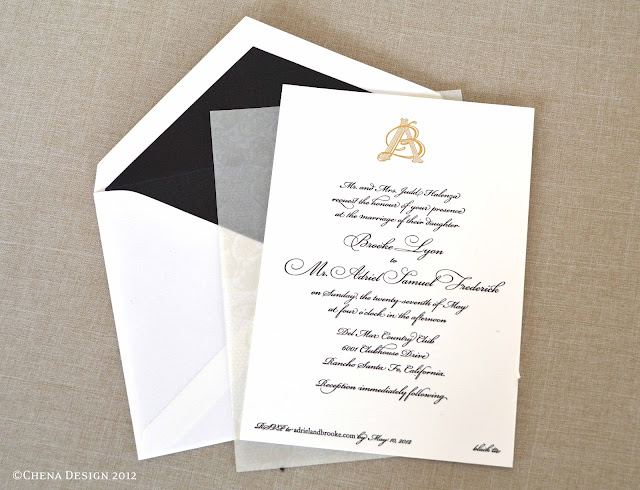 AB
Mr. and Mrs. Judd Halenza
request the honour of your presence
at the marriage of their daughter
Brooke Lyon
to
Mr. Adriel Samuel Frederick
on Sunday the twenty-seventh of May
at four o'clock in the afternoon
Del Mar Country Club
6001 Clubhouse Drive
Rancho Santa Fe, California
Reception immediately following
RSVP to adrielandbrooke.com by May 10, 2012
black tie
©CHENA DESIGN 2012